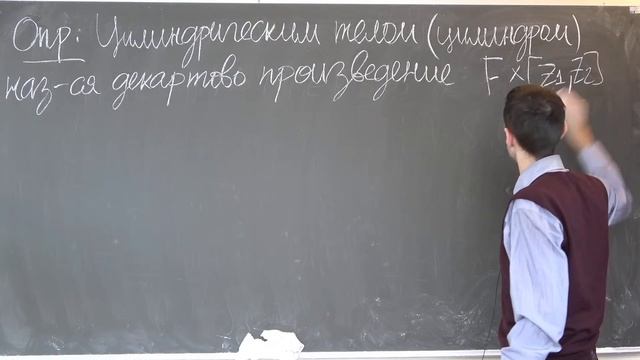 Опр: Цилиндрическим телом (цилиндром)
наз-ся декартово произведение F × [z₁, z₂]